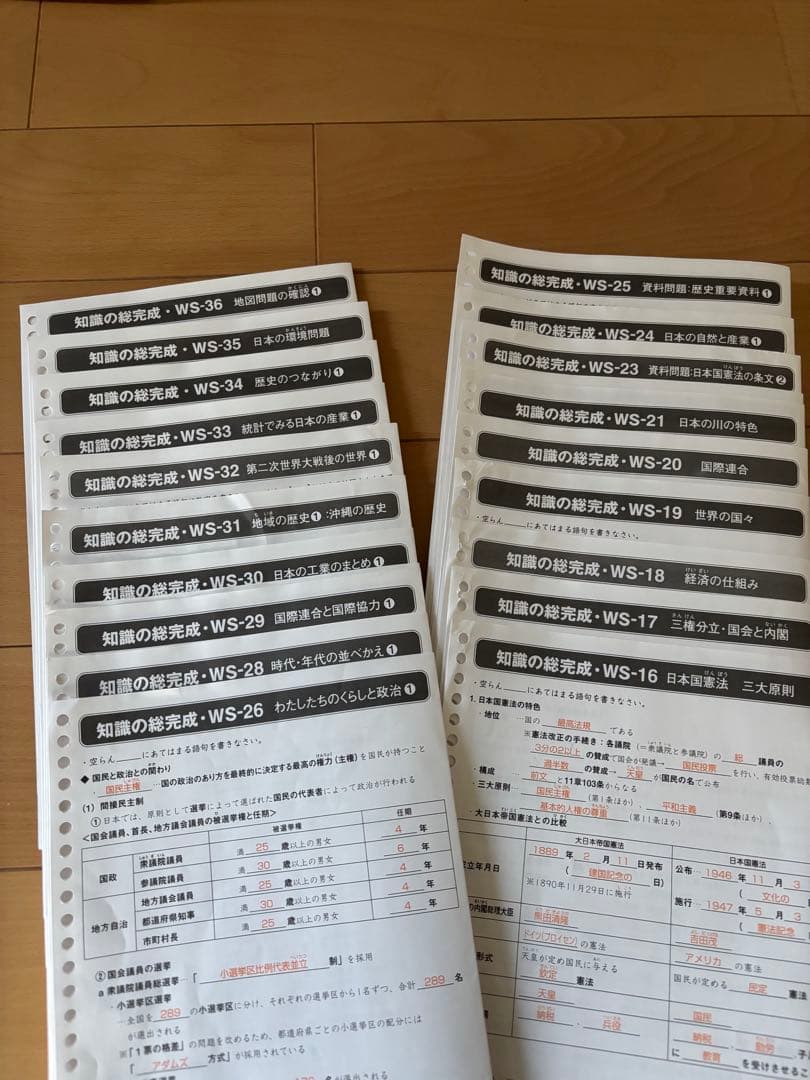 知識の総完成・WS-36 地図問題の確認❶
知識の総完成・WS-35 日本の環境問題
知識の総完成・WS-34 歴史のつながり❶
知識の総完成・WS-33 統計でみる日本の産業❶
知識の総完成・WS-32 第二次世界大戦後の世界❶
知識の総完成・WS-31 地域の歴史❶:沖縄の歴史
知識の総完成・WS-30 日本の工業のまとめ❶
知識の総完成・WS-29 国際連合と国際協力❶
知識の総完成・WS-28 時代・年代の並べかえ❶
知識の総完成・WS-26 わたしたちのくらしと政治❶
・空らん____にあてはまる語句を書きなさい。
◆国民と政治との関わり
・国民主権 …国の政治のあり方を最終的に決定する最高の権力(主権)を国民が持つこと
(1) 間接民主制
①日本では、原則として選挙によって選ばれた国民の代表者によって政治が行われる
<国会議員、首長、地方議会議員の被選挙権と任期>
被選挙権 任期
国政 衆議院議員 満 25 歳以上の男女 4 年
参議院議員 満 30 歳以上の男女 6 年
地方自治 地方議会議員 満 25 歳以上の男女 4 年
都道府県知事 満 30 歳以上の男女 4 年
市町村長 満 25 歳以上の男女 4 年
②国会議員の選挙
a 衆議院議員総選挙…「 小選挙区比例代表並立 制」を採用
・小選挙区選挙
…全国を 289 の小選挙区に分け、それぞれの選挙区から1名ずつ、合計 289 名
が選出される
※「1票の格差」の問題を改めるため、都道府県ごとの小選挙区の配分には
「 アダムズ 方式」が採用されている
名が選出される
知識の総完成・WS-25 資料問題:歴史重要資料❶
知識の総完成・WS-24 日本の自然と産業❶
知識の総完成・WS-23 資料問題:日本国憲法の条文❷
知識の総完成・WS-21 日本の川の特色
知識の総完成・WS-20 国際連合
知識の総完成・WS-19 世界の国々
・空らん____にあてはまる語句を書きなさい。
知識の総完成・WS-18 経済の仕組み
知識の総完成・WS-17 三権分立・国会と内閣
知識の総完成・WS-16 日本国憲法 三大原則
・空らん____にあてはまる語句を書きなさい。
1. 日本国憲法の特色
・地位 …国の 最高法規 である
※憲法改正の手続き:各議院(=衆議院と参議院)の 総 議員の
3分の2以上 の賛成で国会が発議→ 国民投票 を行い、有効投票総
過半数 の賛成→ 天皇 が国民の名で公布
・構成 … 前文 と11章103条からなる
・三大原則… 国民主権 (第1条ほか)、 平和主義 (第9条ほか)、
基本的人権の尊重 (第11条ほか)
・大日本帝国憲法との比較
大日本帝国憲法 日本国憲法
立年月日 1889 年 2 月 11 日発布 公布… 1946 年 11 月 3
( 建国記念の 日) ( 文化の
※1890年11月29日に施行 施行… 1947 年 5 月 3
( 憲法記念
の内閣総理大臣 黒田清隆 吉田茂
ドイツ(プロイセン) の憲法 アメリカ の憲法
形式 天皇が定め国民に与える 国民が定める 民定 憲法
欽定 憲法
天皇 国民
納税 ・ 兵役 納税 ・ 勤労 ・子
に 教育 を受けさせるこ